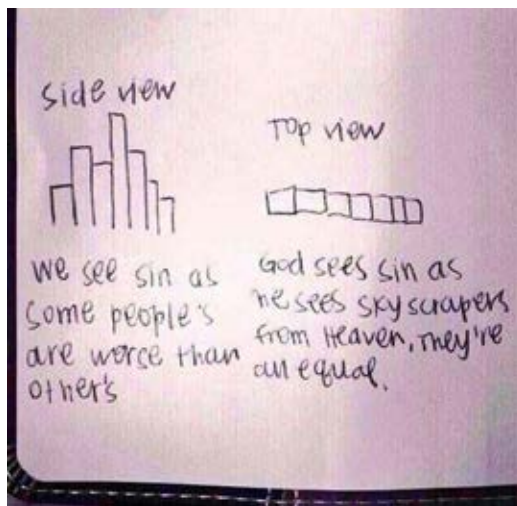 side view
we see sin as
some people's
are worse than
others
Top view
God sees sin as
he sees skyscrapers
from Heaven, They're
all equal.